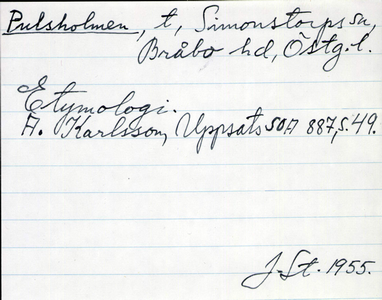 Pulsholmen, t, Simonstorps sn,
Bråbo hd, Östg.l.
Etymologi.
A. Karlsson, Uppsats SOA 887, s. 49.
J-St. 1955.